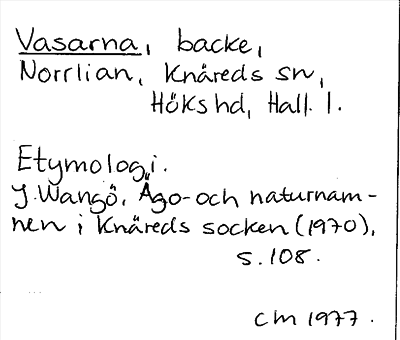 Vasarna, backe,
Norrlian, Knäreds sn,
Höks hd, Hall. l.
Etymologi.
J. Wangö, Ägo- och naturnam-
nen i Knäreds socken (1970),
s. 108.
CM 1977.